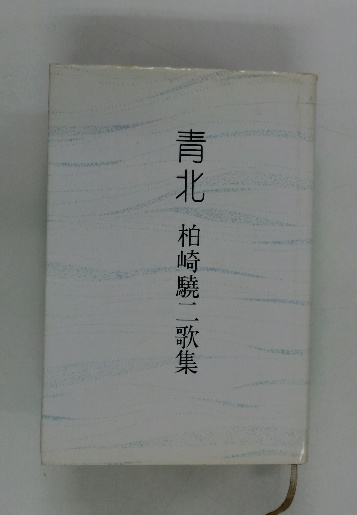 青北 柏崎驍二歌集